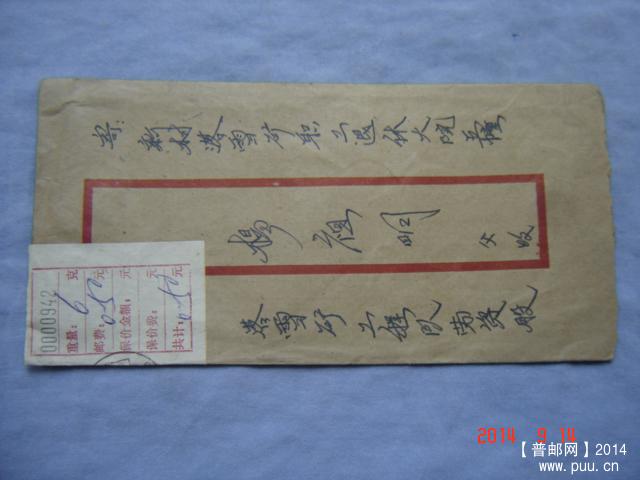 寄：新村落雪矿职工退休大院
杨祖明 父收
落雪矿工程队劳资股
0000942
重量：6 克
邮费：0.50元
保价金额： 元
保价费： 元
共计：0.50元
2014 9 14
【普邮网】2014
www.puu.cn